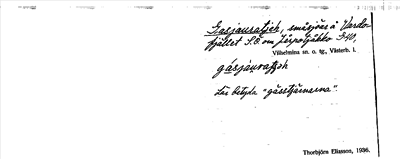 Gasjauratjeh, småsjöar å Vardo-
fjället S.O. om Jäpotjåkko 340,
Vilhelmina sn. o. tg., Västerb. l.
gásjauratjoh
Lär betyda "gässtjärnarna".
Thorbjörn Eliasson, 1936.